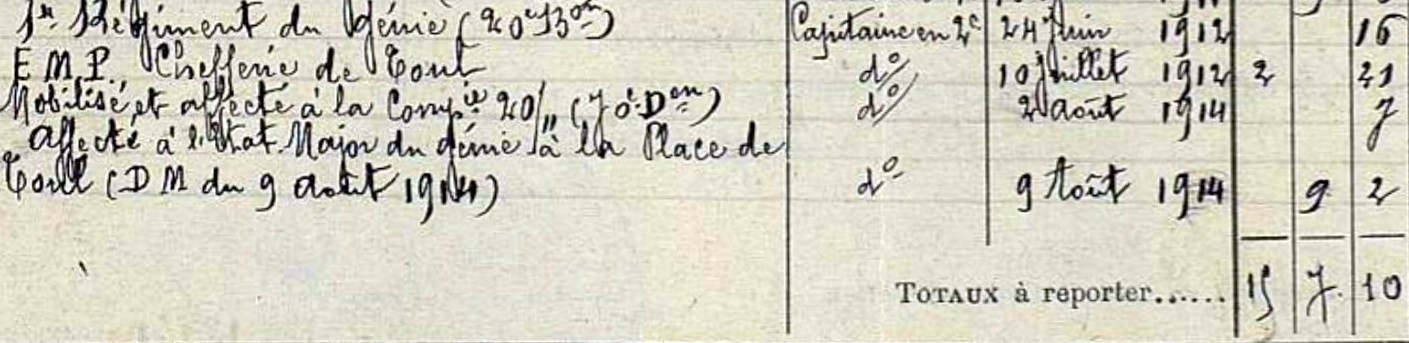 1er Régiment du Génie (20e Bon) Capitaine en 2e 24 Juin 1912 16
E.M.P. Chefferie de Toul do 10 Juillet 1912 2 21
Mobilisé et affecté à la Compie 20/11 (70e Don) do 2 Août 1914 7
Affecté à l'Etat Major du Génie à la Place de
Toul (DM du 9 Août 1914) do 9 Août 1914 9 2
TOTAUX à reporter...... 15 7 10